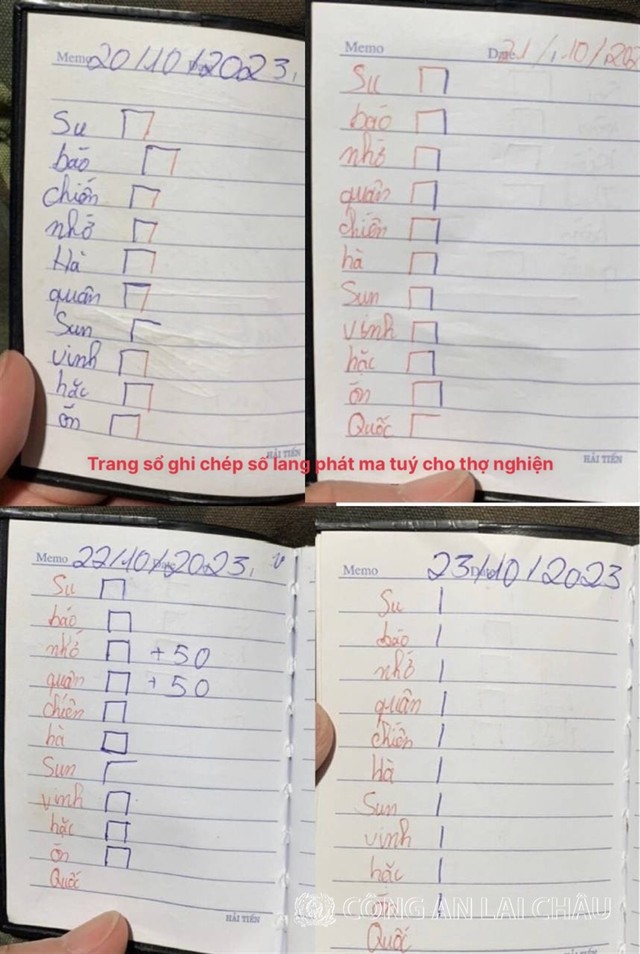 Memo 20/10/2023.
Su
báo
chiến
nhớ
Hà
quân
Sun
vinh
hắc
ổn
HẢI TIẾN
Memo Date 21/10/202
Su
báo
nhớ
quân
chiến
hà
Sun
vinh
hắc
ổn
Quốc
HẢI TIẾN
Trang sổ ghi chép sô lang phát ma tuý cho thợ nghiện
Memo 22/10/2023.
Su
báo
nhớ +50
quân +50
chiến
hà
Sun
vinh
hắc
ổn
Quốc
HẢI TIẾN
Memo Date 23/10/2023
Su
báo
nhớ
quân
chiến
Hà
Sun
vinh
hắc
ổn
Quốc
CÔNG AN LAI CHÂU
HẢI TIẾN